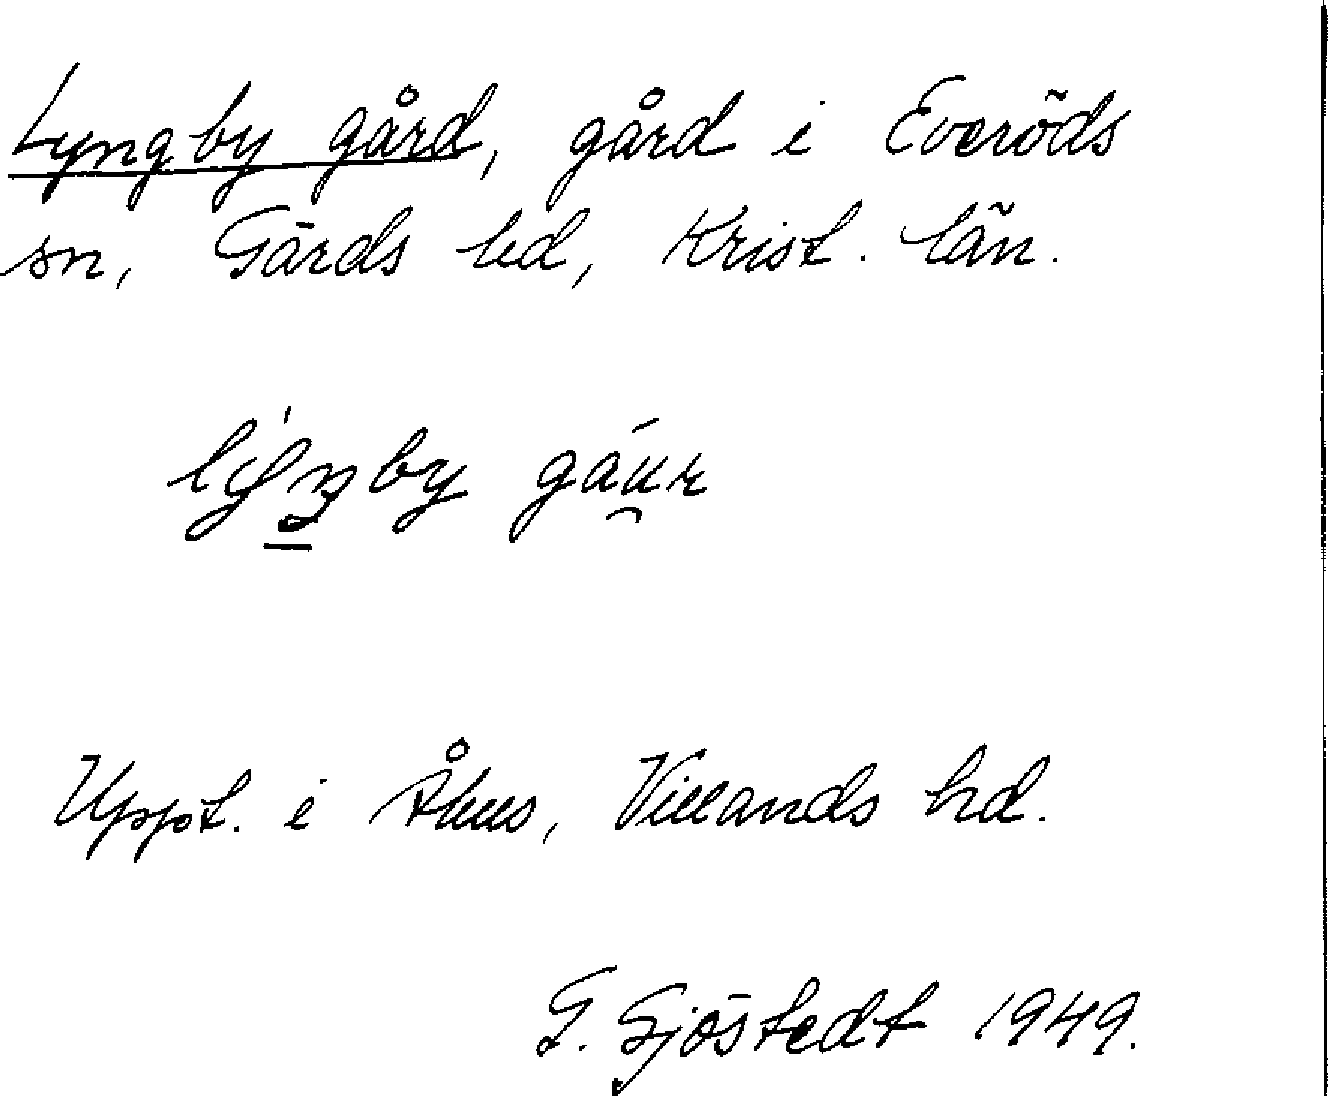 Lyngby gård, gård i Everöds
sn, Gärds hd, Krist. län.
by
Uppt. i Åhus, Villands hd.
G. Sjöstedt 1949.